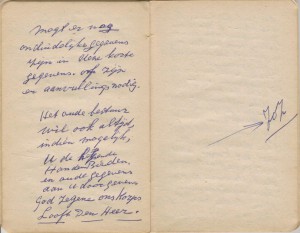 Mogt er nog
onduidelijke gegevens
zijn in deze korte
gegevens. of zijn
er aanvullings nodig.
Het oude bestuur
wil ook altijd,
indien mogelijk,
U de helpende
Handen Bieden.
en oude gegevens
aan U doorgeven
God zegene ons Korps
Looft Den Heer.